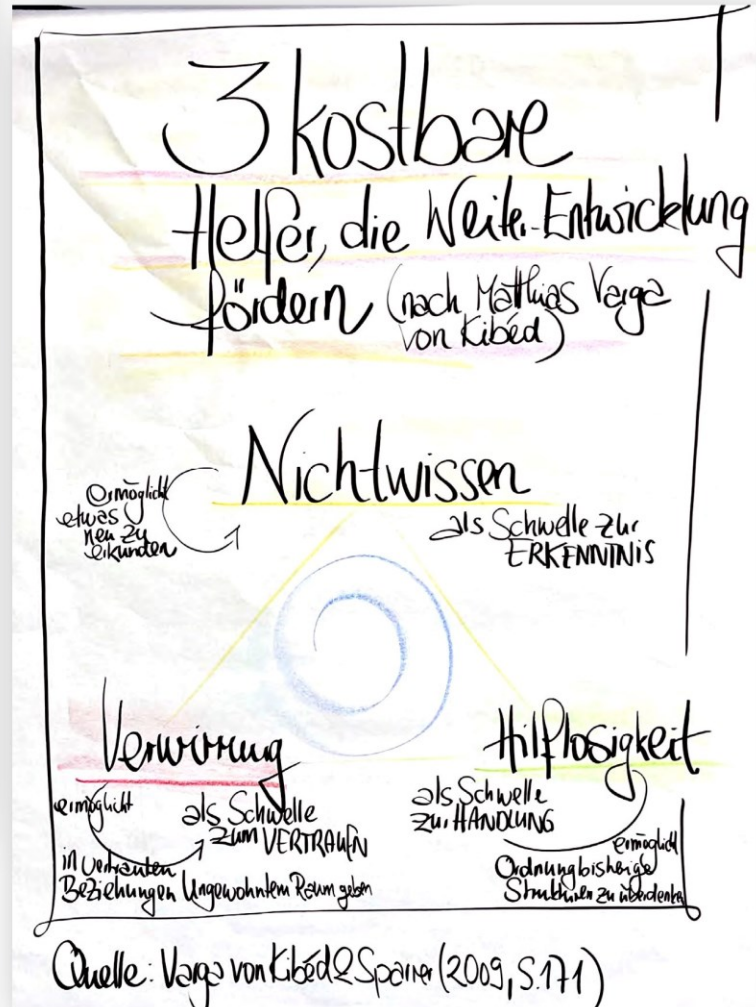 3 kostbare
Helfer, die Weiter-Entwicklung
fördern (nach Matthias Varga
von Kibéd)
Nichtwissen
ermöglicht
etwas
neu zu
erkunden
als Schwelle zur
ERKENNTNIS
Verwirrung
ermöglicht
als Schwelle
zum VERTRAUEN
in vertrauten
Beziehungen Ungewohntem Raum geben
Hilflosigkeit
als Schwelle
zur HANDLUNG
ermöglicht
Ordnung bisherige
Strukturen zu überdenken
Quelle: Varga von Kibéd & Sparrer (2009, S.171)